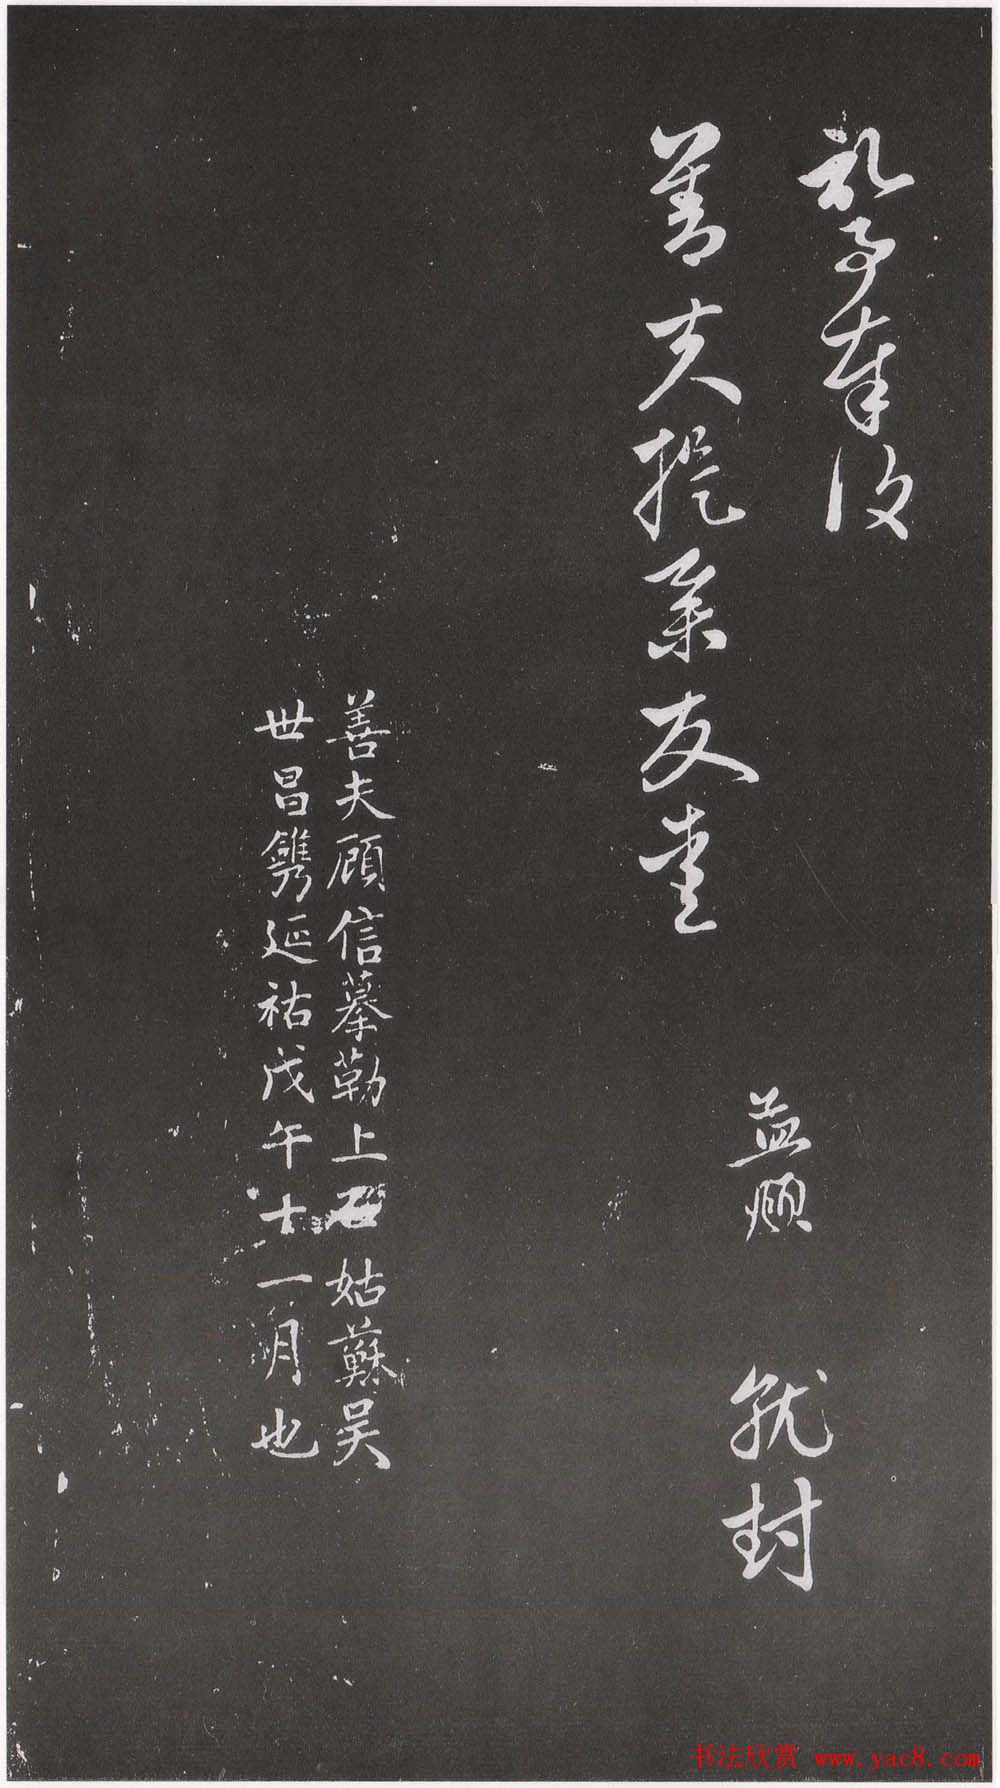 事奉復
善夫提舉友
孟頫 就封
善夫顧信摹勒上石姑蘇吳
世昌鐫延祐戊午十一月也
书法欣赏 www.yac8.com